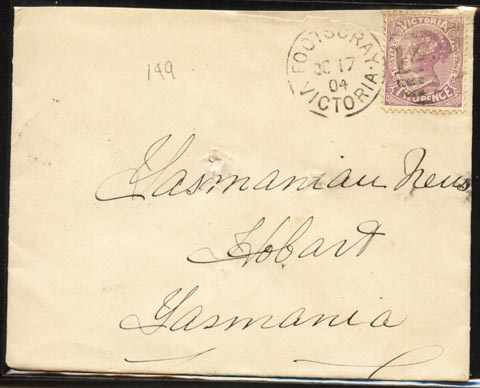 149
FOOTSCRAY
OC 17
04
VICTORIA
VICTORIA
TWO PENCE
Tasmanian News
Hobart
Tasmania